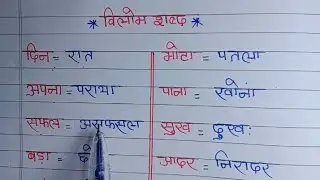 * विलोम शब्द *
दिन = रात
अपना = पराया
सफल = असफल
बड़ा =
मोटा = पतला
पाना = खोना
सुख = दुखः
आदर = निरादर